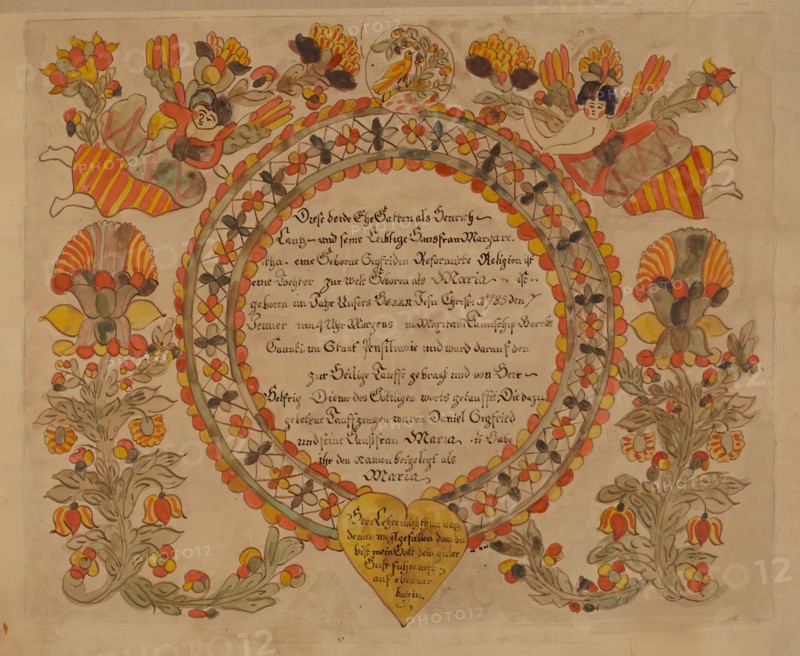 Diese beide Ehe Gatten als Henrich
Lautz und seine Eehlige Hausfrau Margare-
tha eine Geborne Sigfridin Reformirte Religion ist
eine Tochter zur Welt Geboren als Maria ist
geboren im Jahr Unsers HERRN Jesu Christi 1785 den 7
Jenner um 4 Uhr Morgens in Taunschip Beercks
Caunti im Staat Pensilvanie und ward darauf den
zur Heilige Tauffe gebrach und von Herr
Helfrig Diener des Göttligen worts getauffet, Die dazu
gebetene Tauffzeugen waren Daniel Sigfried
und seine Hausfrau Maria Habe
ihr den namen beigelegt als
Maria
Herr Lehre mich thun nach
deinem wohlgefallen dan du
bist mein Gott dein guter
Geist führe mich
auf ebenner
bahn,
PHOTO12